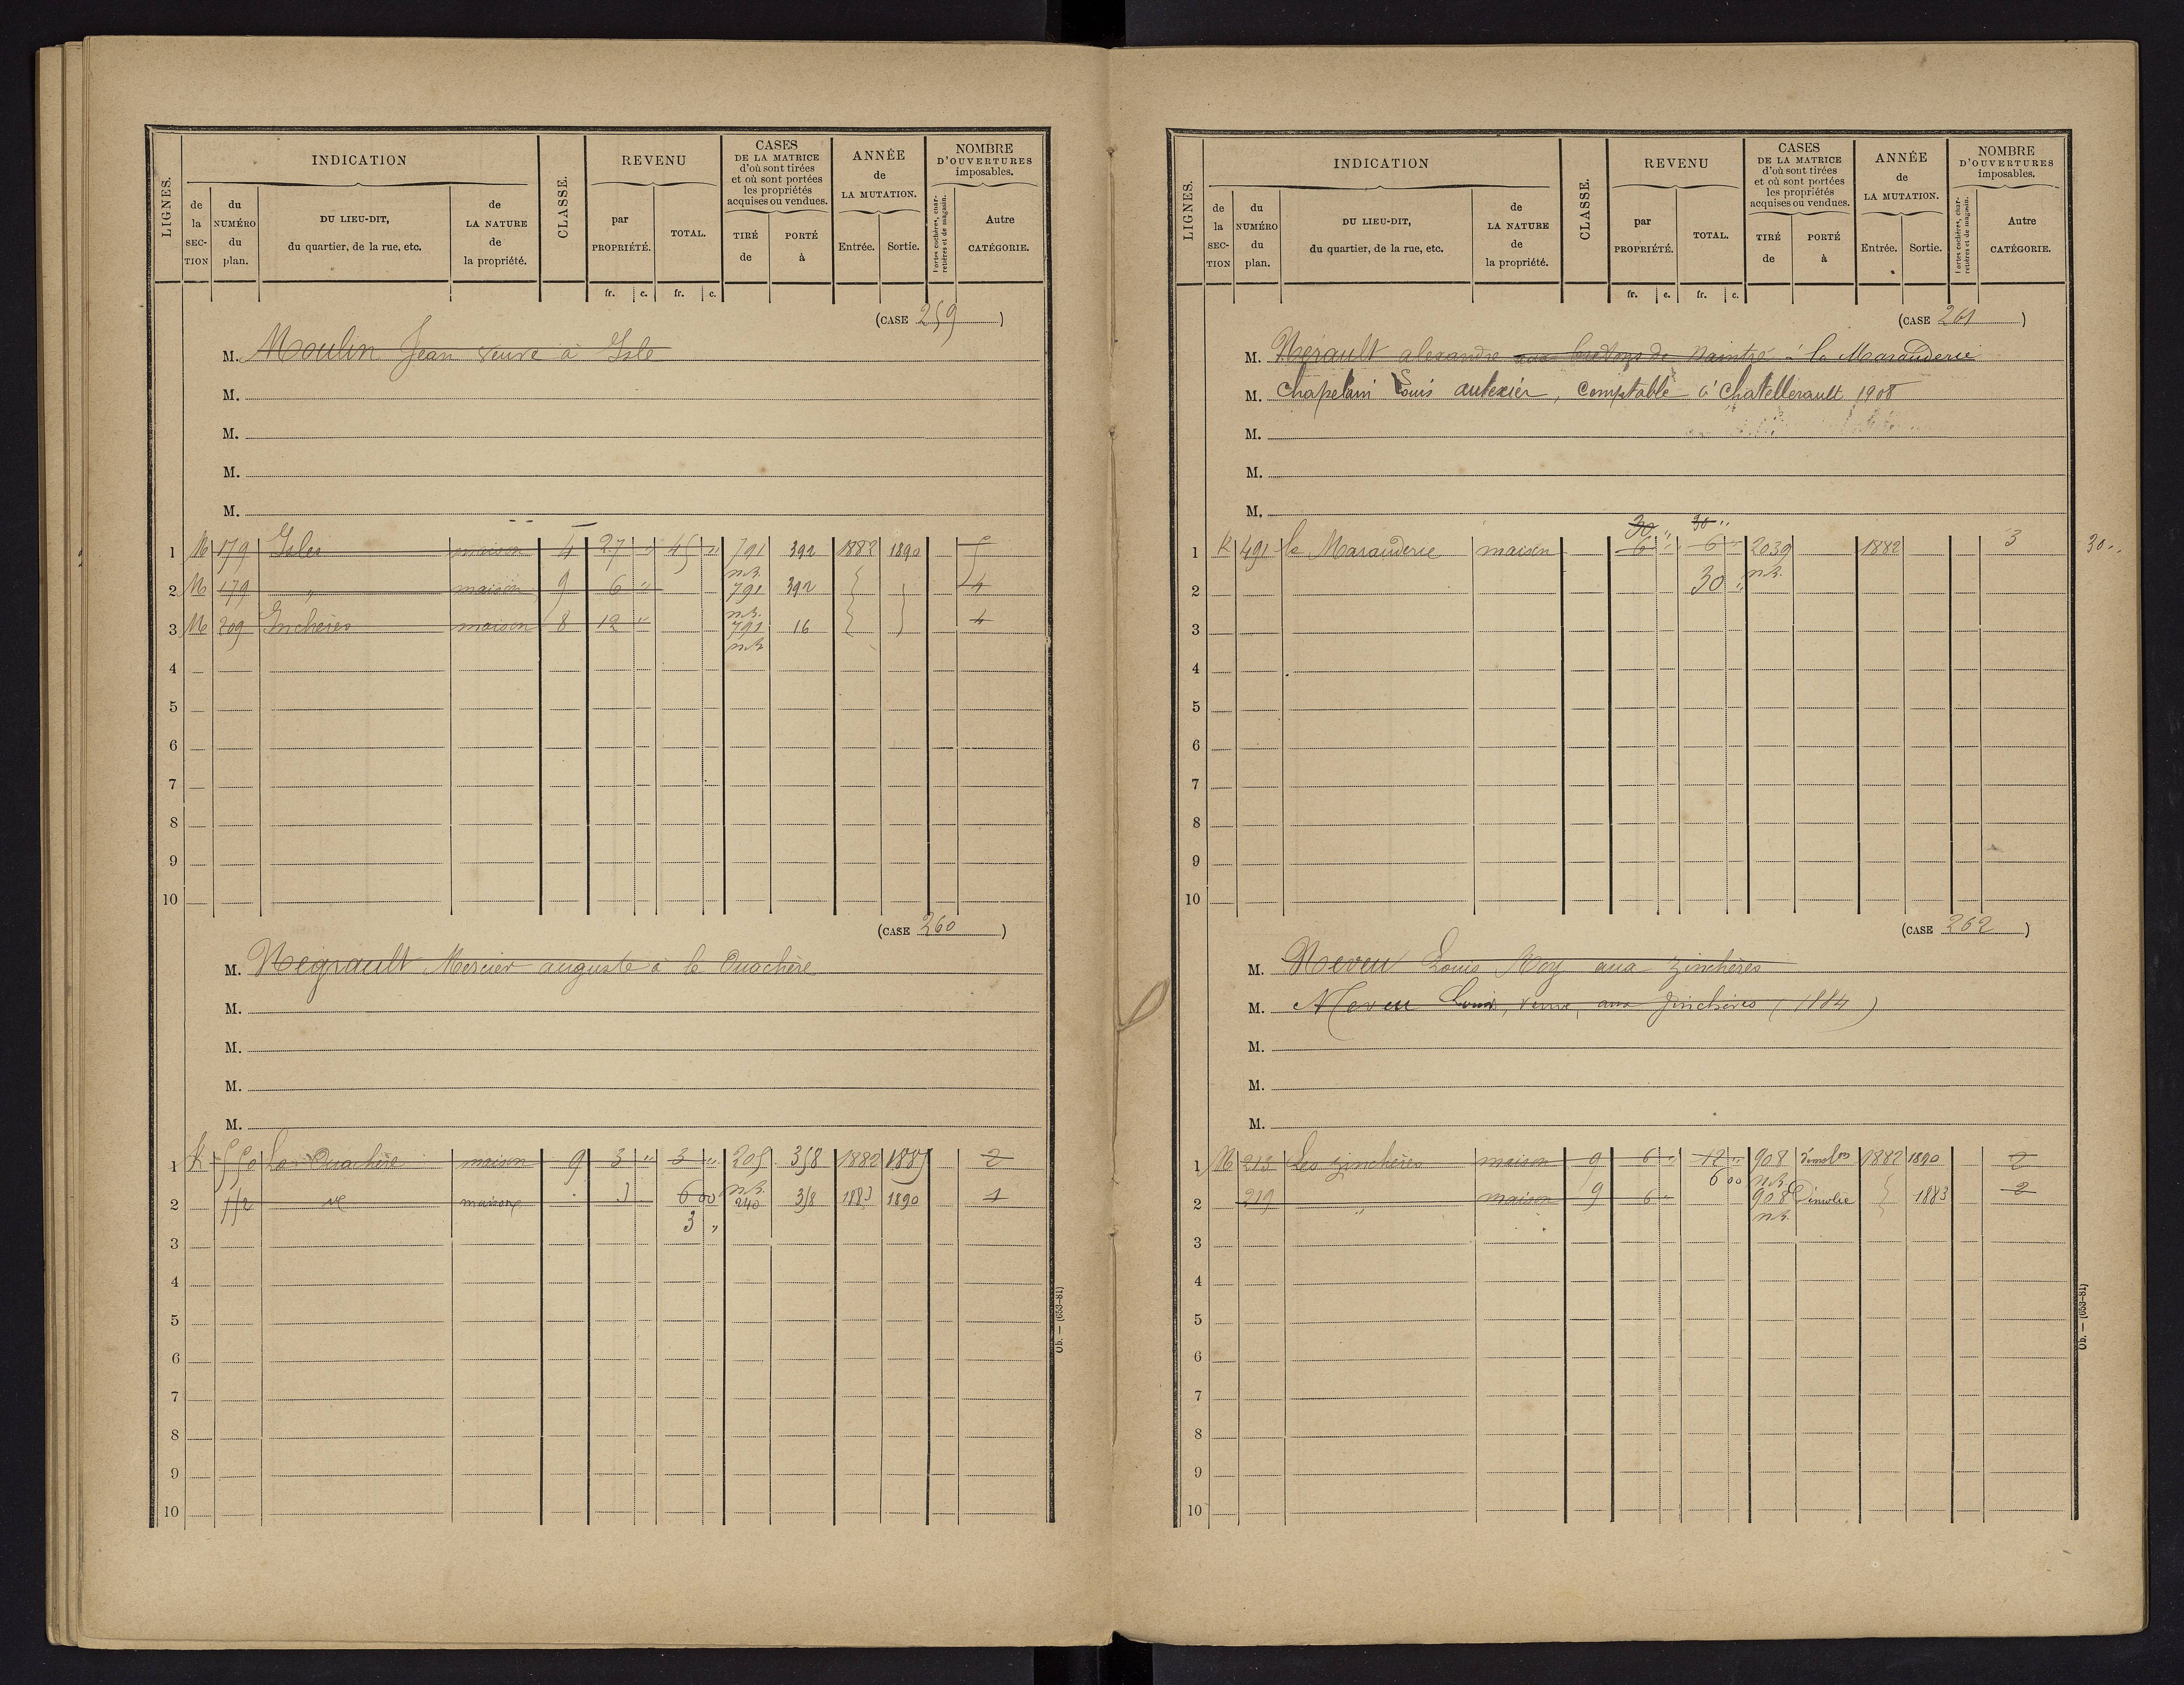 LIGNES.
INDICATION
de la SECTION
du NUMÉRO du plan.
DU LIEU-DIT, du quartier, de la rue, etc.
de LA NATURE de la propriété.
CLASSE.
REVENU
par PROPRIÉTÉ.
TOTAL.
CASES DE LA MATRICE d'où sont tirées et où sont portées les propriétés acquises ou vendues.
TIRÉ de
PORTÉ à
ANNÉE de LA MUTATION.
Entrée.
Sortie.
NOMBRE D'OUVERTURES imposables.
Portes cochères, charretières et de magasin.
Autre CATÉGORIE.
fr. c. fr. c.
(CASE 259)
M. Moulin Jean veuve à Isle
M.
M.
M.
M.
1 M 179 Isles maison 4 27 " 45 " 791 392 1882 1890 5
n.B.
2 M 179 " maison 9 6 " 791 392 4
n.B.
3 M 209 Inchères maison 8 12 " 791 16 4
n.B.
4
5
6
7
8
9
10
(CASE 260)
M. Negrault Mercier auguste à la Ouachère
M.
M.
M.
M.
1 K 550 La Ouachère maison 9 3 " 3 " 205 358 1882 1885 2
n.B.
2 552 maison 3 6 00 240 358 1883 1890 1
3 "
3
4
5
6
7
8
9
10
Ob. — (653-81)
LIGNES.
INDICATION
de la SECTION
du NUMÉRO du plan.
DU LIEU-DIT, du quartier, de la rue, etc.
de LA NATURE de la propriété.
CLASSE.
REVENU
par PROPRIÉTÉ.
TOTAL.
CASES DE LA MATRICE d'où sont tirées et où sont portées les propriétés acquises ou vendues.
TIRÉ de
PORTÉ à
ANNÉE de LA MUTATION.
Entrée.
Sortie.
NOMBRE D'OUVERTURES imposables.
Portes cochères, charretières et de magasin.
Autre CATÉGORIE.
fr. c. fr. c.
(CASE 261)
M. Nérault alexandre aux bretons de naintré à la Marauderie
M. Chapelain Louis autexier, Comptable à Chatellerault 1908
M.
M.
M.
30 " 30 "
1 K 491 la Marauderie maison 6 " 6 " 2039 1882 3 30 "
2 30 " n.B.
3
4
5
6
7
8
9
10
(CASE 262)
M. Neveu Louis Roy aux zinchères
M. Neveu Louis, veuve, aux zinchères (1884)
M.
M.
M.
1 M 213 Les zinchères maison 9 6 " 12 " 908 1882 1890 2
6 00 n.B.
2 219 " maison 9 6 " 908 Démolie 1883 2
n.B.
3
4
5
6
7
8
9
10
Ob. — (653-81)